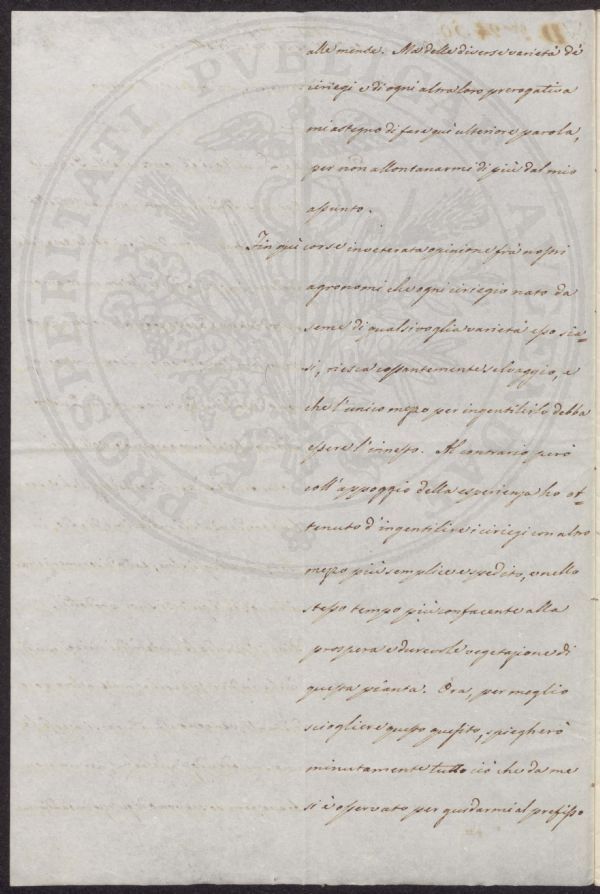 alle mente. Ma delle diverse varietà de'
ciriegi e di ogni altra loro prerogativa
mi astegno di fare quì ulteriore parola,
per non allontanarmi di più dal mio
assunto.
Fin quì corse inveterata opinione frà nostri
agronomi che ogni ciriegio nato da
seme di qualsivoglia varietà esso sia=
si, riesca costantemente selvaggio, e
che l'unico mezzo per ingentilirlo debba
essere l'innesto. Al contrario però
coll'appoggio della esperienza ho ot=
tenuto d'ingentilire i ciriegi con altro
mezzo più semplice e spedito, e nello
stesso tempo più confacente alla
prospera e durevole vegetazione di
questa pianta. Ora, per meglio
sciogliere questo quesito, spiegherò
minutamente tutto ciò che da me
si è osservato per guidarmi al prefisso
PROSPERITATI PUBLICAE AUGENDAE